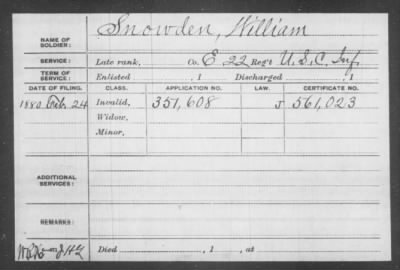 Snowden, William
NAME OF SOLDIER:
SERVICE: Late rank, Co. E 22 Reg't U.S.C. Inf.
TERM OF SERVICE: Enlisted , 1 Discharged , 1
DATE OF FILING. CLASS. APPLICATION NO. LAW. CERTIFICATE NO.
1880 Feb. 24 Invalid, 351,608 J 561,023
Widow,
Minor,
ADDITIONAL SERVICES:
REMARKS:
Died , 1 , at